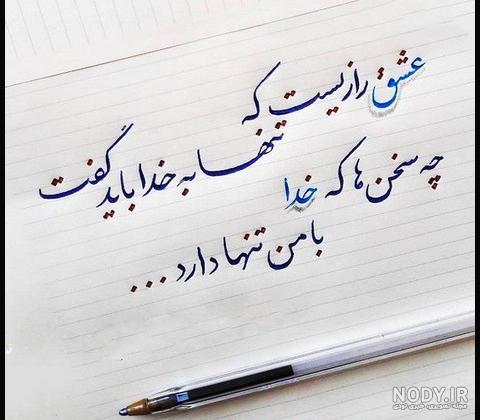 عشق رازیست که
تنها به خدا باید گفت
چه سخن ها که خدا
با من تنها دارد ...
NODY.IR
مجله تصویری خبری نودی